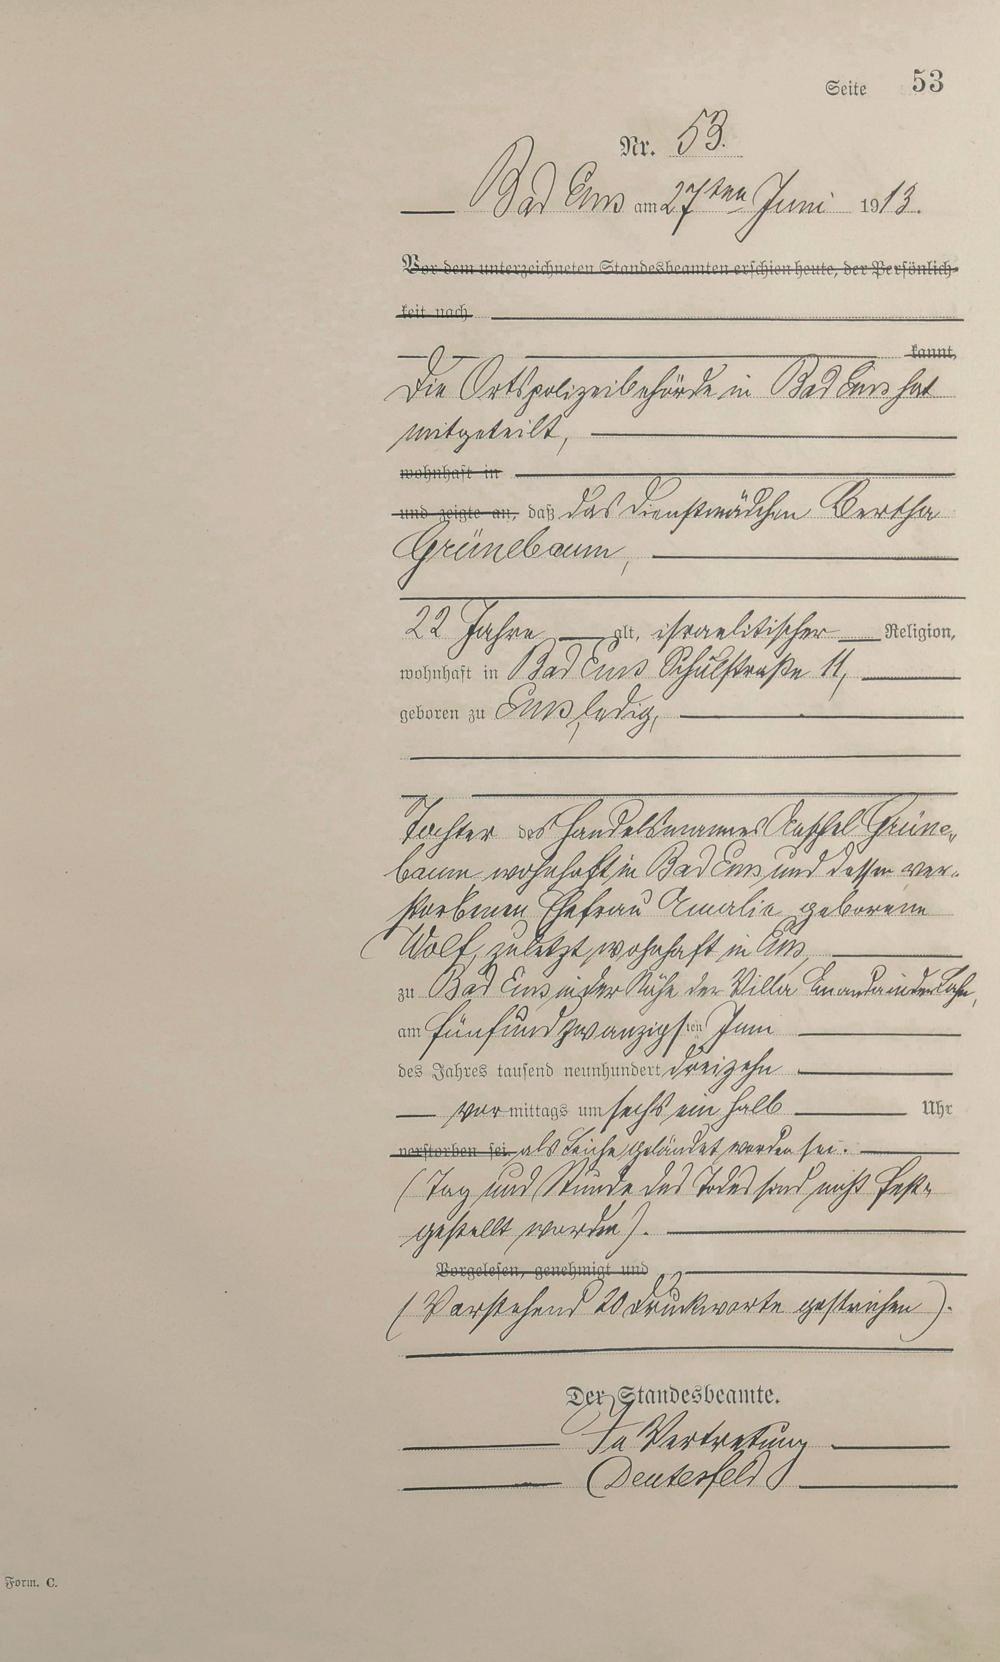 Seite 53
Nr. 53.
Bad Ems am 27ten Juni 1913.
Vor dem unterzeichneten Standesbeamten erschien heute, der Persönlich-
keit nach
kannt,
Die Ortspolizeibehörde in Bad Ems hat
mitgeteilt,
wohnhaft in
und zeigte an, daß das Dienstmädchen Bertha
Grünebaum,
22 Jahre alt, israelitischer Religion,
wohnhaft in Bad Ems Schulstraße 11,
geboren zu Ems, ledig,
Tochter des Handelsmannes Anschel Grüne-
baum wohnhaft in Bad Ems und dessen ver-
storbenen Ehefrau Amalie geborene
Wolf, zuletzt wohnhaft in Ems,
zu Bad Ems in der Nähe der Villa in der Lahn,
am fünfundzwanzigsten Juni
des Jahres tausend neunhundert dreizehn
vormittags um sechs ein halb Uhr
verstorben sei. als Leiche geländet worden sei.
(Tag und Stunde des Todes sind nicht fest-
gestellt worden).
Vorgelesen, genehmigt und
(Vorstehend 20 Druckworte gestrichen).
Der Standesbeamte.
In Vertretung
Deutesfeld
Form. C.